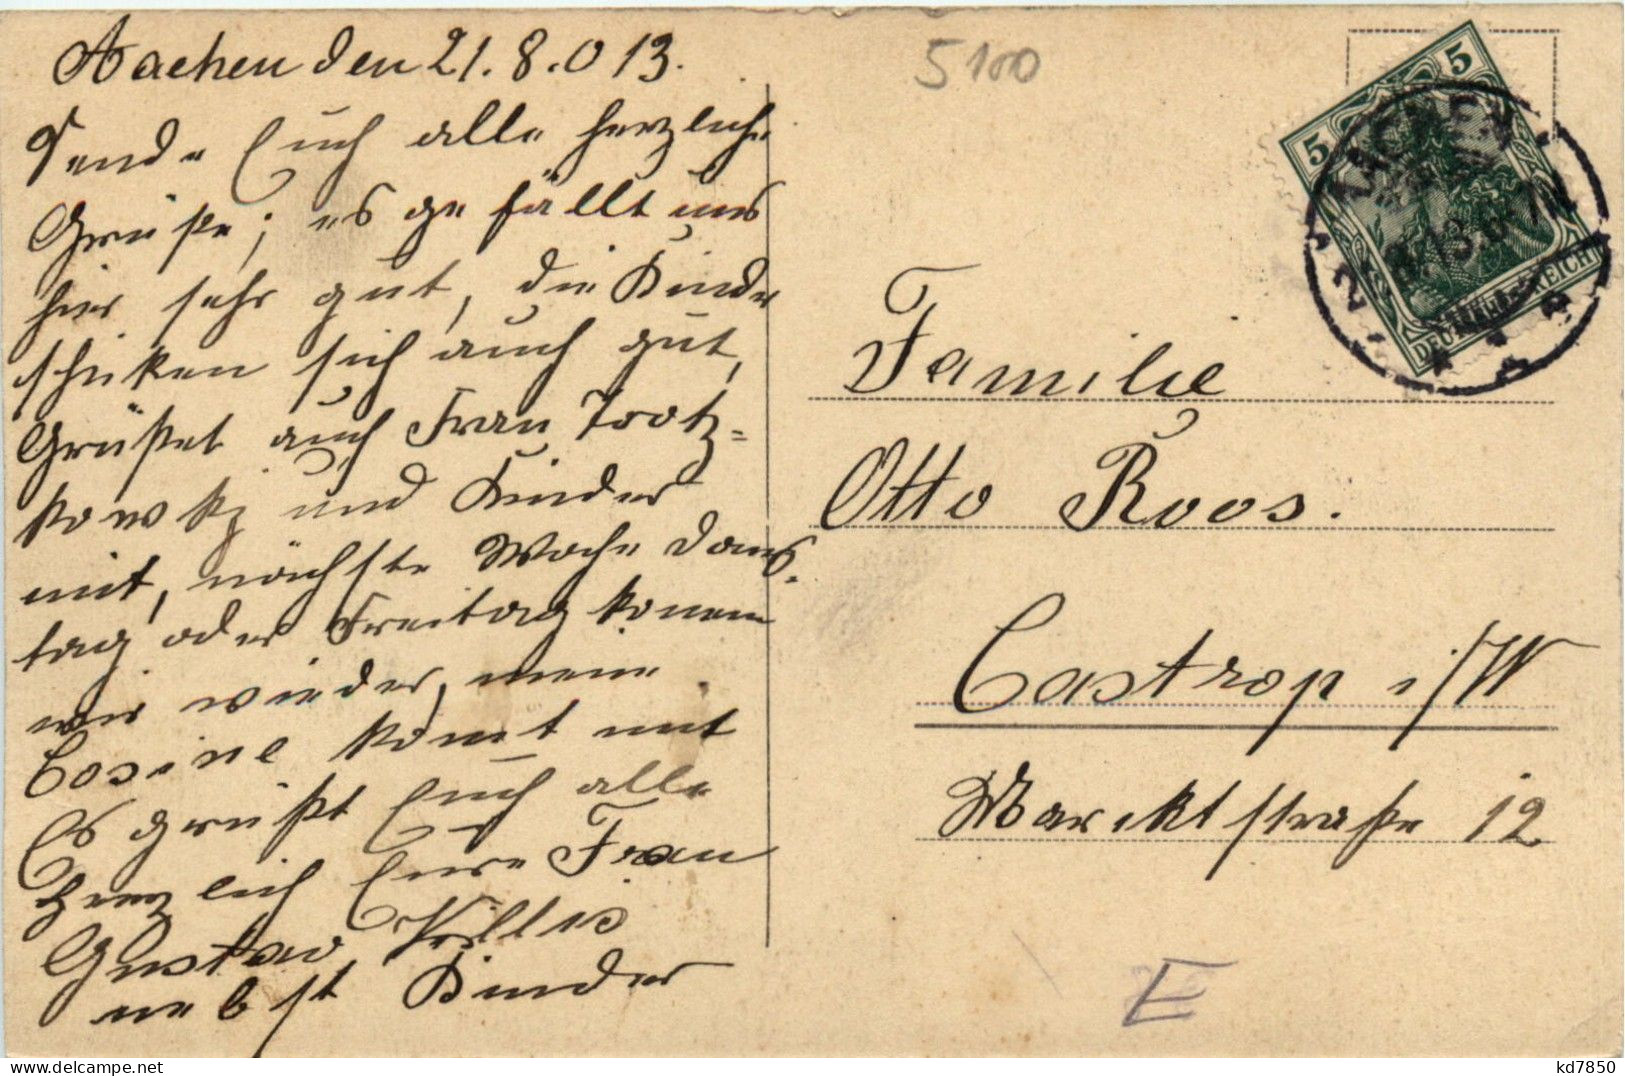 Aachen den 21.8.013.
Sende Euch alle herzliche
Grüße; es gefällt uns
hier sehr gut, die Kinder
schiken sich auch gut,
Grüßet auch Frau Trotz=
kowky und Kinder
mit, nächste Woche Dons.
tag oder Freitag komen
wir wieder, meine
Cosine komt mit
Es grüßt Euch alle
Herzlich Eure Frau
Gustav
nebst Kinder
5100
5 5
DEUTSCHES REICH
AACHEN
Familie
Otto Roos.
Castrop i/W
Marcktstraße 12
E
kd7850